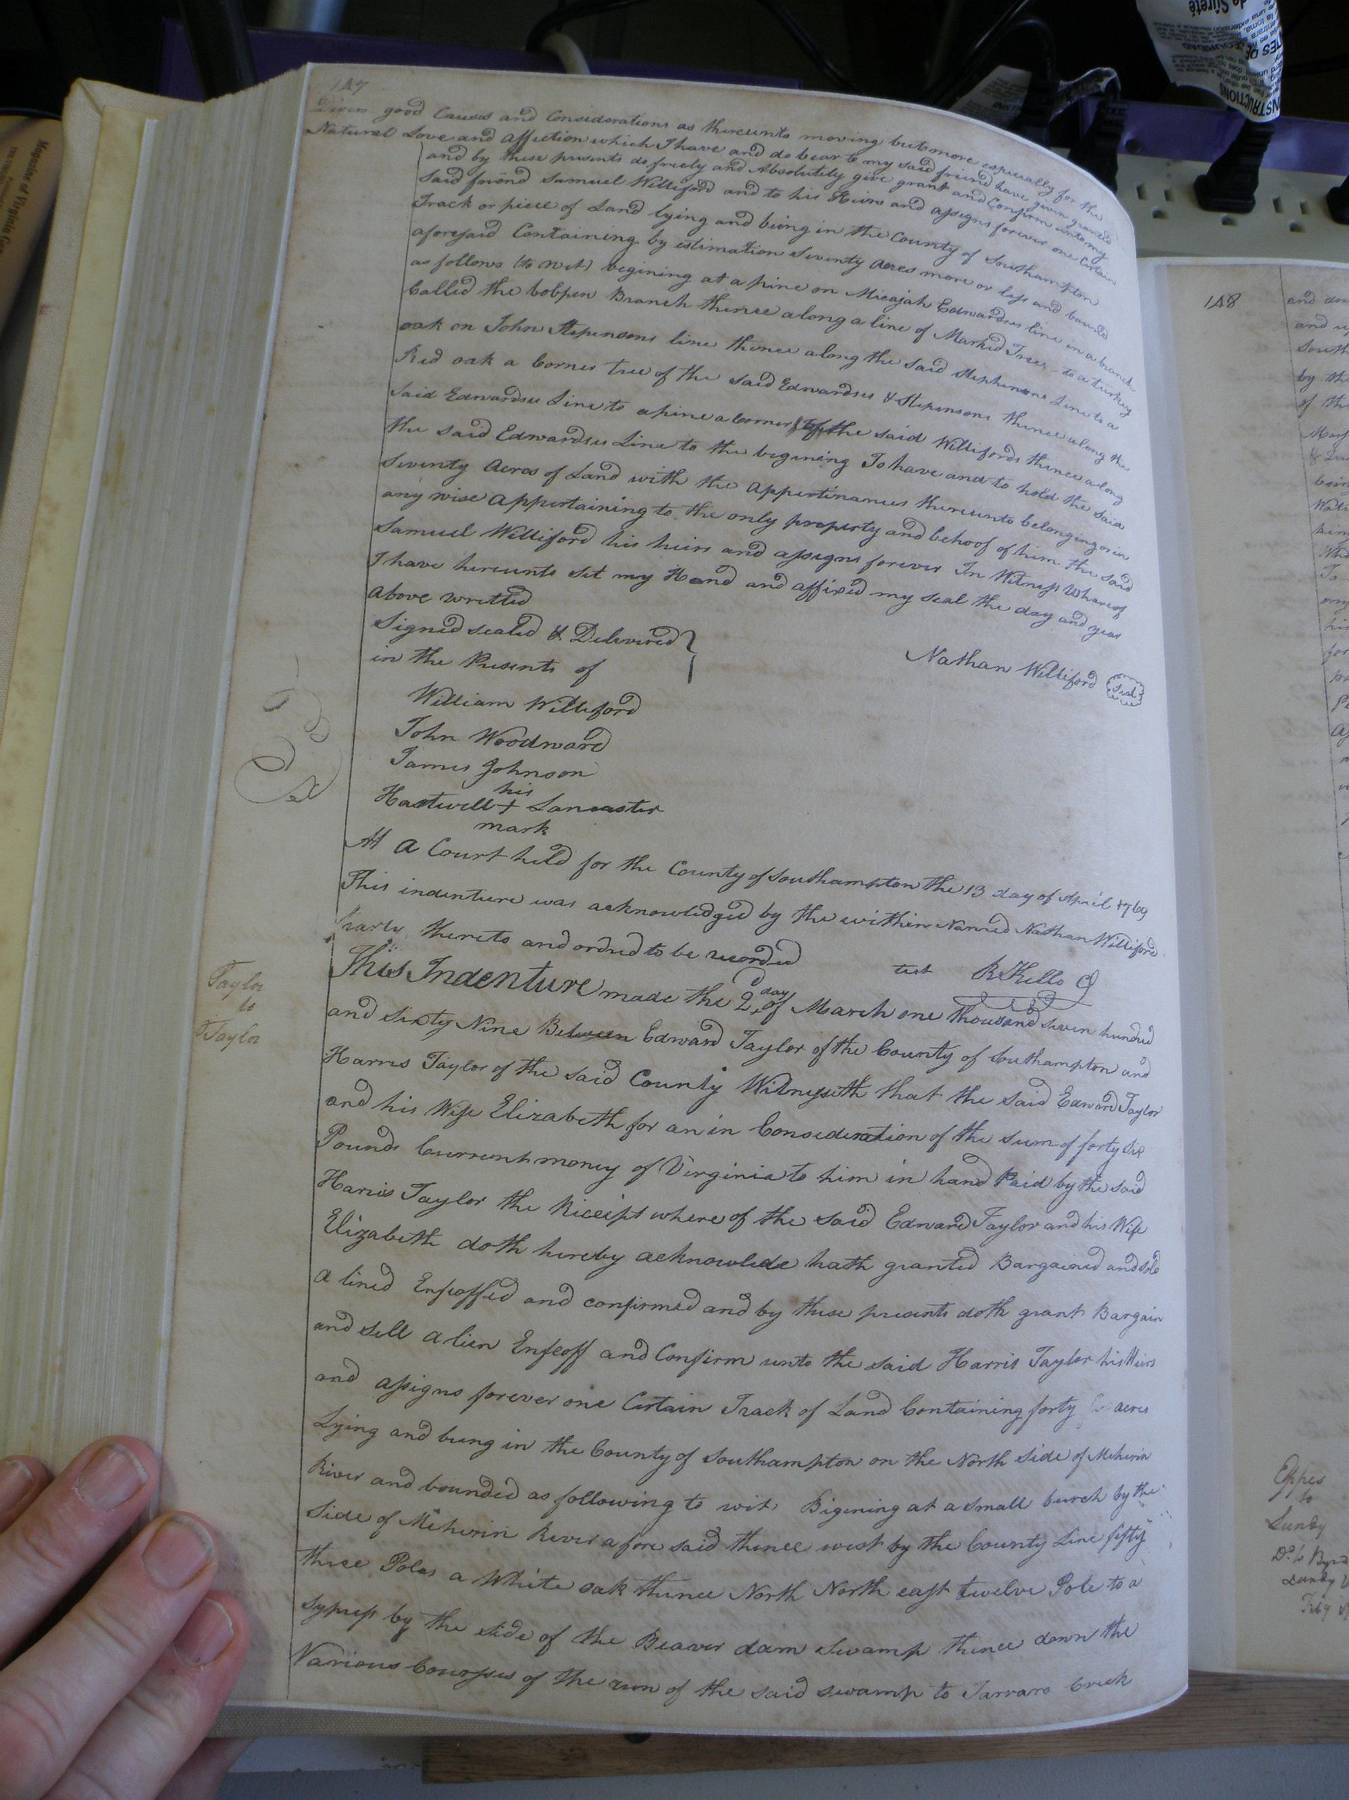 147
Divers good Causes and Considerations as thereunto moving but more especially for the
Natural Love and affection which I have and do bear to my said friend have given granted
and by these presents do freely and Absolutely give grant and Confirm unto my
Said friend Samuel Williford and to his Heirs and assigns forever one Certain
Track or piece of Land lying and being in the County of Southampton
aforesaid Containing by estimation Seventy Acres more or less and bound
as follows (to wit) begining at a pine on Micajah Edwardses line in a branch
Called the Cobpen Branch thence along a line of Marked Trees to a turkey
oak on John Stepensons line thence along the said Stephensons Line to a
Red oak a Corner tree of the said Edwardses & Stepensons thence along the
Said Edwardses Line to a pine a Corner of the said Willifords thence along
the said Edwardses Line to the begining To have and to hold the said
Seventy Acres of Land with the Appertinances thereunto belonging or in
any wise Appertaining to the only property and behoof of him the said
Samuel Williford his heirs and assigns forever In Witness Whareof
I have hereunto set my Hand and affixed my seal the day and year
above writted
Signed sealed & Delivered
in the Presents of
Nathan Williford Seal
William Williford
John Woodward
James Johnson
his
Hartwell + Lancaster
mark
At A Court held for the County of Southampton the 13 day of April 1769
This indenture was acknowledged by the within Named Nathan Williford
party thereto and ordred to be recorded
test R Kello C
Taylor
to
Taylor
This Indenture made the 2d day of March one thousand seven hundred
and Sixty Nine Between Edward Taylor of the County of Southampton and
Harris Taylor of the said County Witnesseth that the said Edward Taylor
and his Wife Elizabeth for an in Consideration of the sum of forty six
Pounds Current money of Virginia to him in hand Paid by the said
Harris Taylor the Receipt where of the said Edward Taylor and his Wife
Elizabeth doth hereby acknowlede hath granted Bargained and sold
A lined Enfeoffed and confirmed and by these presents doth grant Bargain
and sell A lien Enfeoff and Confirm unto the said Harris Taylor his Heirs
and assigns forever one Certain Track of Land Containing forty acres
Lying and being in the County of Southampton on the North Side of Meherin
River and bounded as following to wit, Bigining at a small burch by the
Side of Meherin River a fore said thence west by the County Line fifty
three Poles a White oak thence North North east twelve Pole to a
Sypress by the side of the Beaver dam Swamp thence down the
Various Courses of the run of the said swamp to Tarraro Creek
148
and
and
South
by the
of the
Eppes
to
Lundy